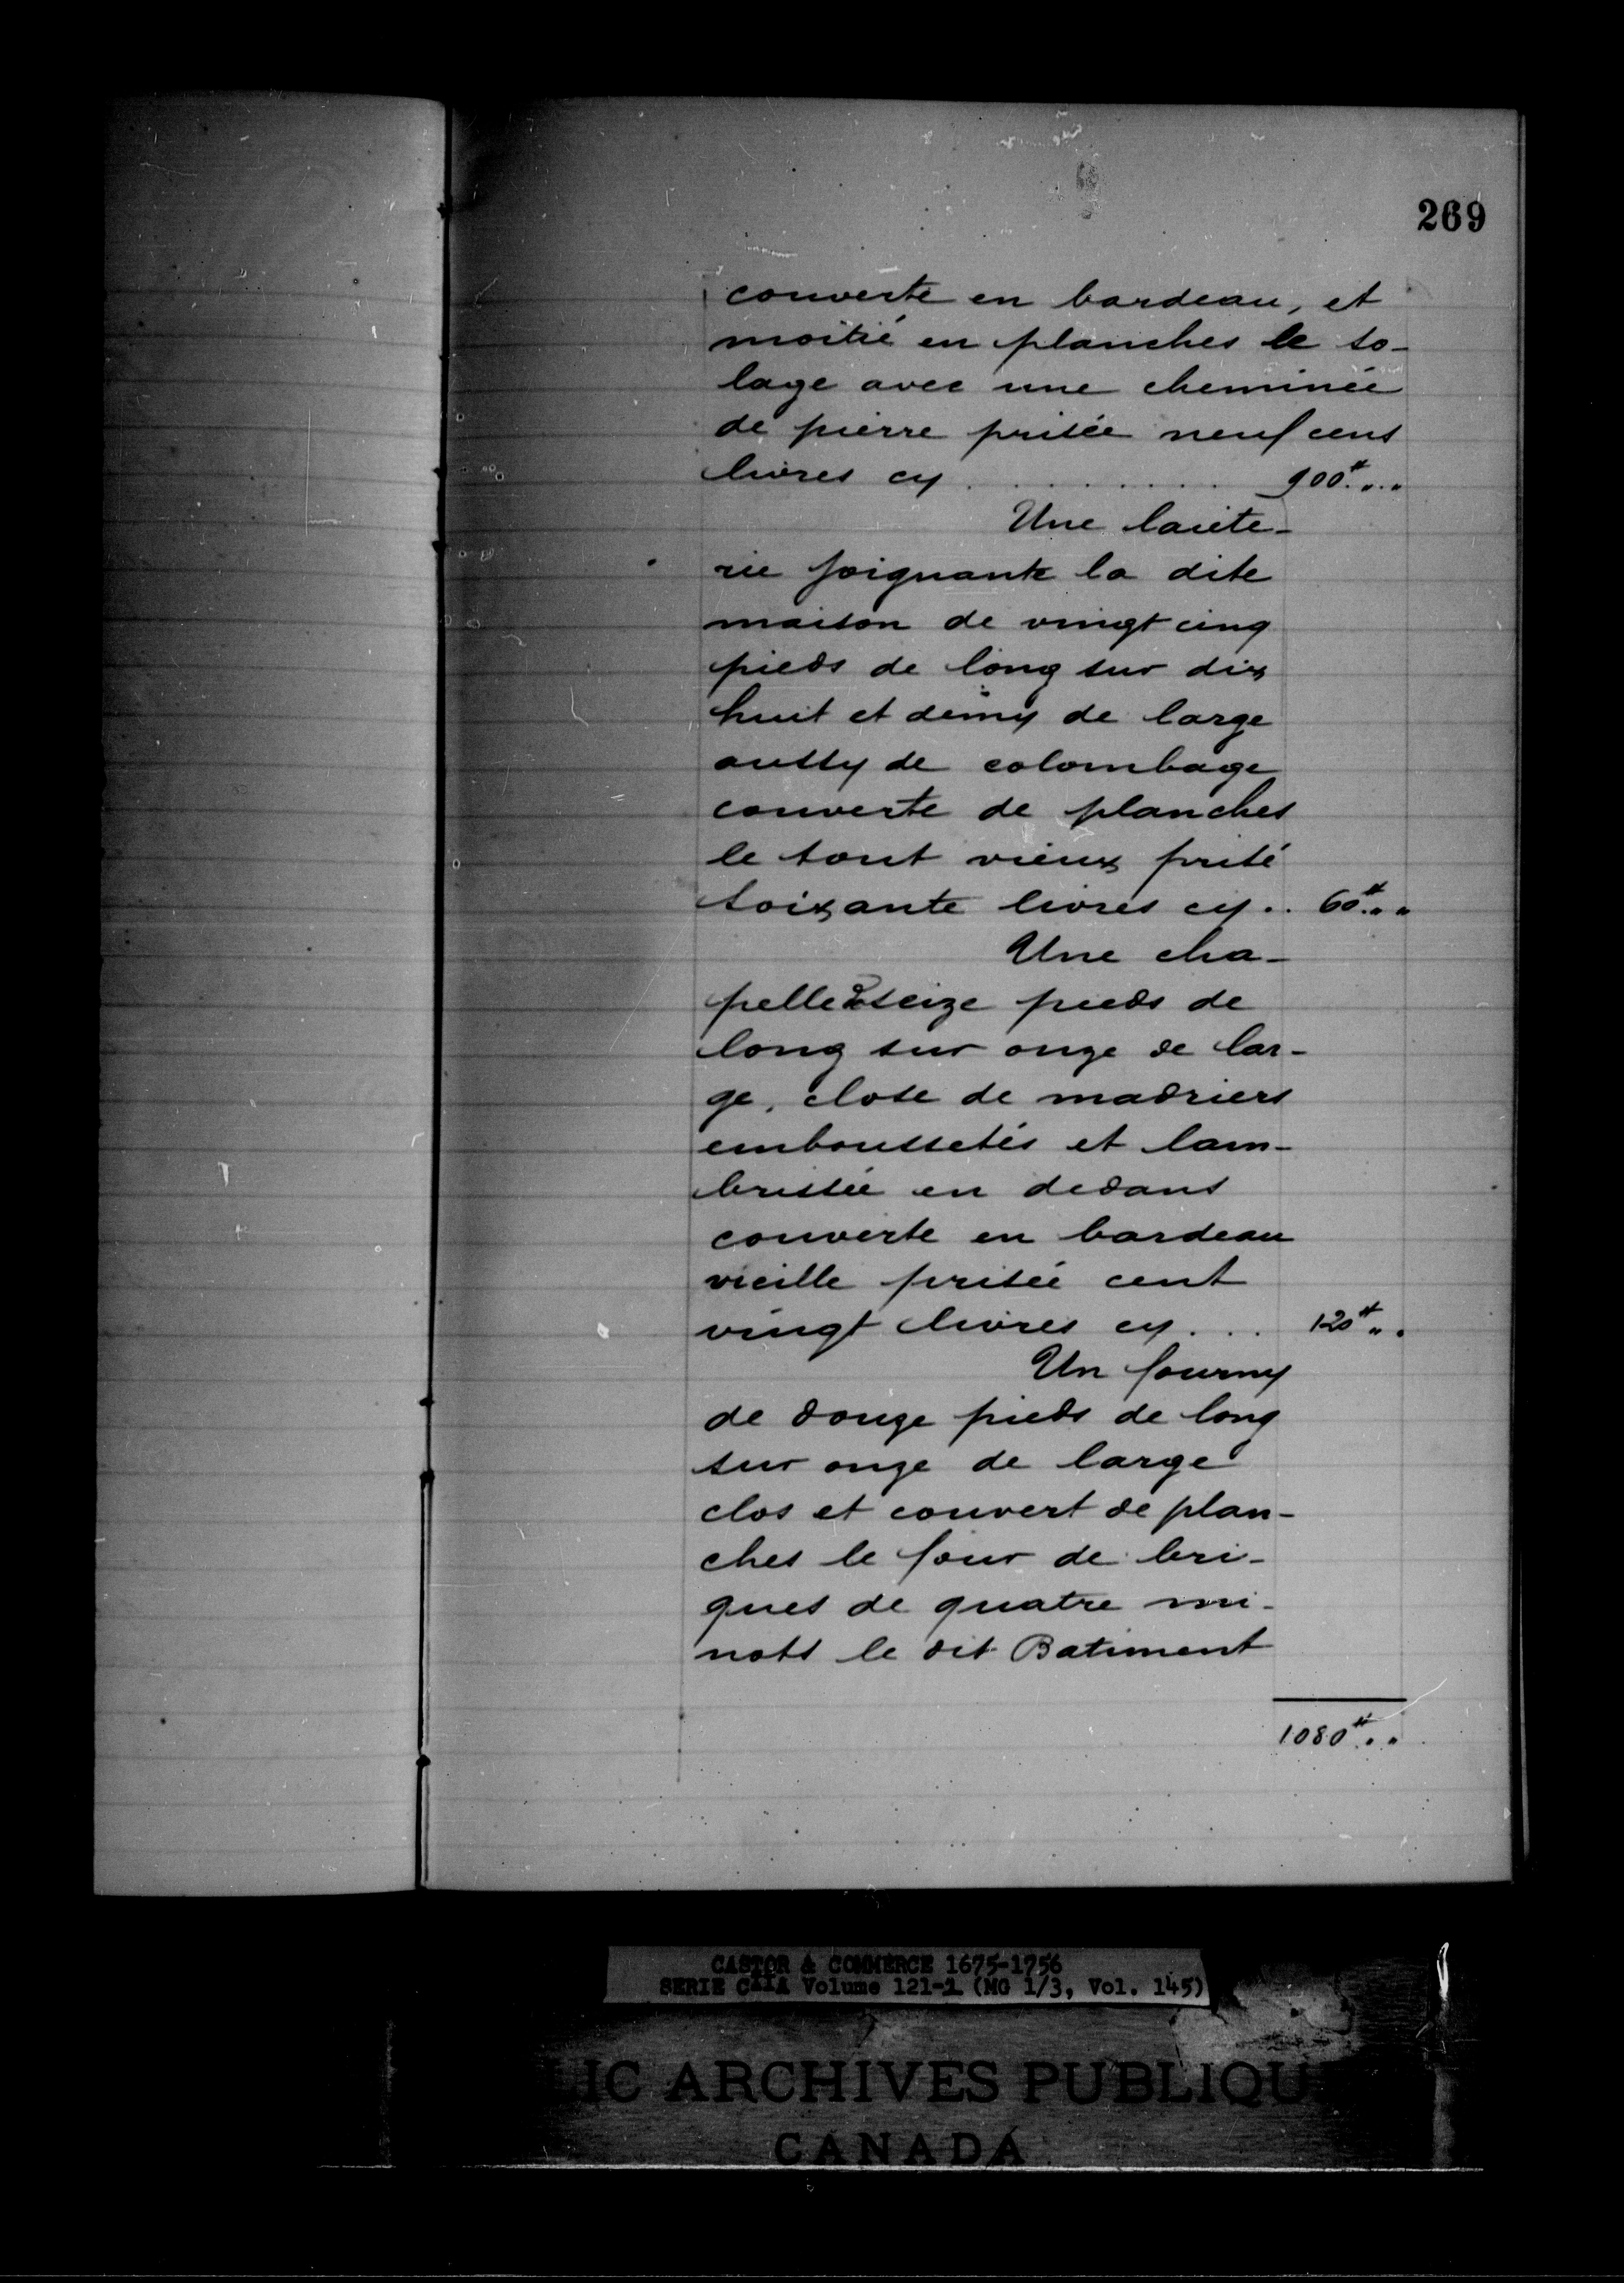 269
couverte en bardeau, et
moitié en planches le so-
lage avec une cheminée
de pierre prisée neuf cens
livres cy . . . . . . . . . 900# „ „
Une laite-
rie joignante la dite
maison de vingt cinq
pieds de long sur dix
huit et demy de large
aussy de colombage
couverte de planches
le tout vieux prisé
soixante livres cy . . 60# „ „
Une cha-
pelle de seize pieds de
long sur onze de lar-
ge, close de madriers
emboussetés et lam-
brissée en dedans
couverte en bardeau
vieille prisée cent
vingt livres cy . . . 120# „ „
Un fourny
de douze pieds de long
sur onze de large
clos et couvert de plan-
ches le four de bri-
ques de quatre mi-
nots le dit Batiment
1080# „ „
CASTOR & COMMERCE 1675-1756
SERIE C11A Volume 121-1 (MG 1/3, Vol. 145)
LIC ARCHIVES PUBLIQU
CANADA